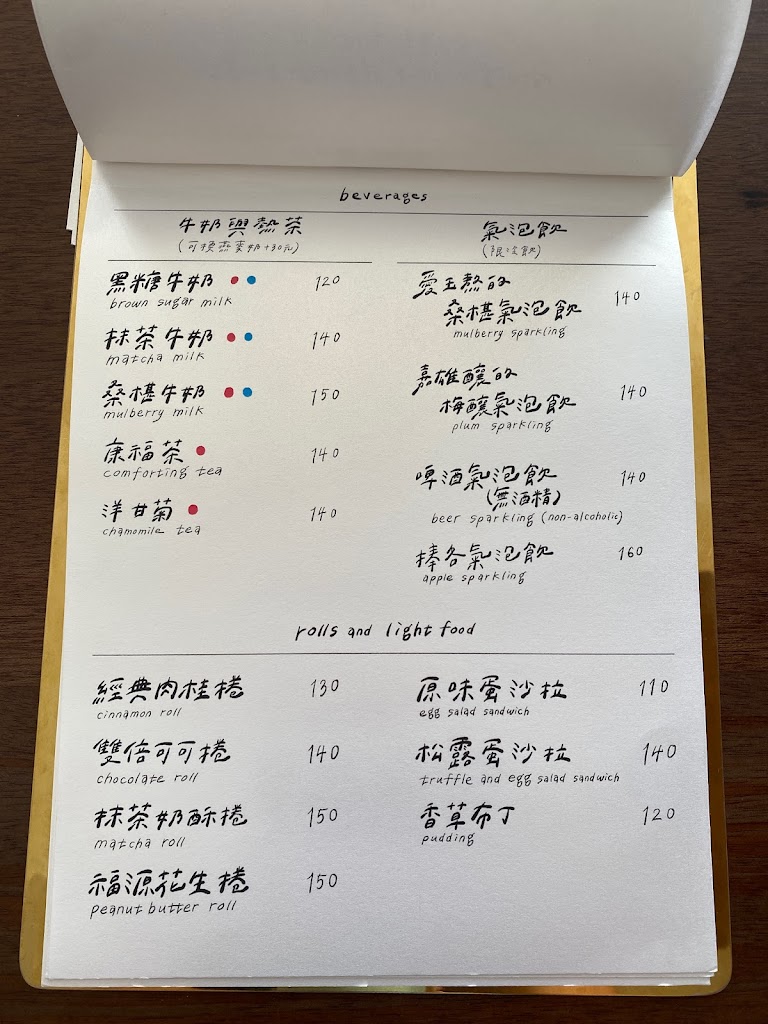 beverages
牛奶與熱茶
(可換燕麥奶+30元)
黑糖牛奶 120
brown sugar milk
抹茶牛奶 140
matcha milk
桑椹牛奶 150
mulberry milk
康福茶 140
comforting tea
洋甘菊 140
chamomile tea
氣泡飲
(限冷飲)
愛玉熬的
桑椹氣泡飲 140
mulberry sparkling
嘉雄釀的
梅釀氣泡飲 140
plum sparkling
啤酒氣泡飲 140
(無酒精)
beer sparkling (non-alcoholic)
棒各氣泡飲 160
apple sparkling
rolls and light food
經典肉桂捲 130
cinnamon roll
雙倍可可捲 140
chocolate roll
抹茶奶酥捲 150
matcha roll
福源花生捲 150
peanut butter roll
原味蛋沙拉 110
egg salad sandwich
松露蛋沙拉 140
truffle and egg salad sandwich
香草布丁 120
pudding